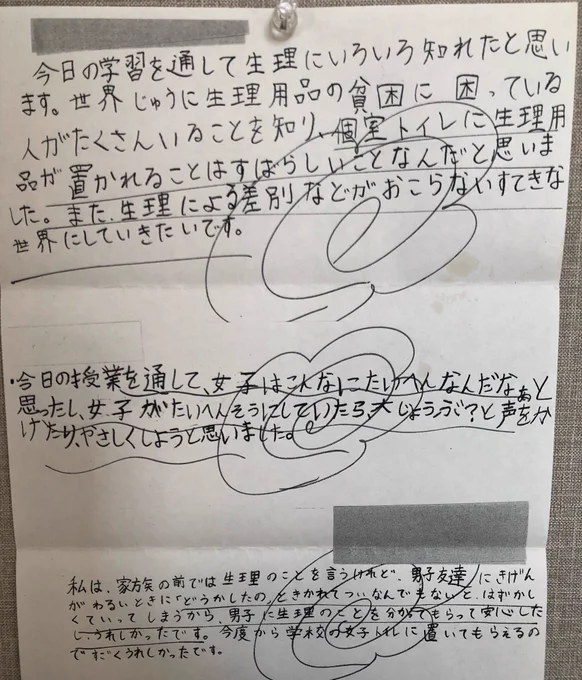 今日の学習を通して生理にいろいろ知れたと思い
ます。世界じゅうに生理用品の貧困に困っている
人がたくさんいることを知り、個室トイレに生理用
品が置かれることはすばらしいことなんだと思いま
した。また、生理による差別などがおこらないすてきな
世界にしていきたいです。
・今日の授業を通して、女子はこんなにたいへんなんだなぁと
思ったし、女子がたいへんそうにしていたら大じょうぶ?と声をか
けたり、やさしくしようと思いました。
私は、家族の前では生理のことを言うけれど、男子友達にきげん
がわるいときに「どうかしたの」ときかれてついなんでもないと、はずかし
くていってしまうから、男子に生理のことを分かってもらって安心した
しうれしかったです。今度から学校の女子トイレに置いてもらえるの
ですごくうれしかったです。